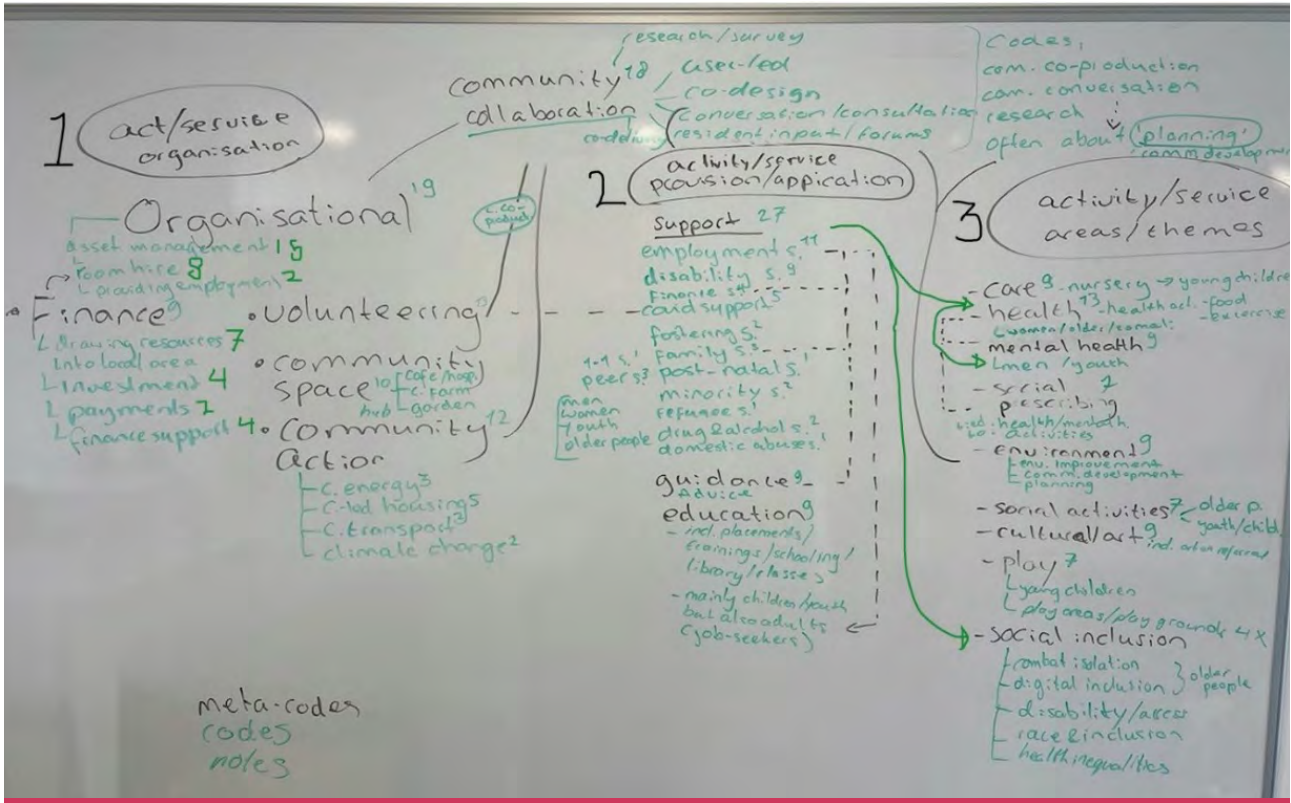 1
act/service
organisation
community 18
collaboration
research/survey
user-led
co-design
conversation/consultation
resident input/forums
co-delivery
Codes,
com. co-production
com. conversation
research
often about 'planning'
comm development
Organisational 19
asset management 15
room hire 8
providing employment 2
Finance 9
drawing resources 7
into local area
investment 4
payments 2
finance support 4
c. co-
product
• volunteering
• community
space 10
cafe/hosp.
c. farm
garden
hub
• community 12
action
c. energy 3
c-led housing 5
c. transport 3
climate change 2
meta-codes
codes
notes
2
activity/service
provision/appication
support 27
employment s. 11
disability s. 9
Finance s. 4
covid support 5
fostering s. 2
family s.
1-1 s. 1
peer s. 3
post-natal s. 1
minority s. 2
refugee s. 1
drug & alcohol s. 2
domestic abuse s. 1
men
women
youth
older people
guidance 9
Advice
education 9
- incl. placements/
trainings/schooling/
library/classes
- mainly children/youth
but also adults
(job-seekers)
3
activity/service
areas/themes
- care 9 - nursery → young children
- health 13 - health act. - food
- excercise
women/older/comm.
- mental health 9
men/youth
- social 2
prescribing
health/ment.h.
to activities
- environment 9
env. improvement
comm. development
planning
- social activities 7
older p.
youth/child.
- cultural/art 9
- play 7
young children
play areas/play grounds 4x
- social inclusion
combat isolation
digital inclusion
older
people
disability/access
race & inclusion
health inequalities